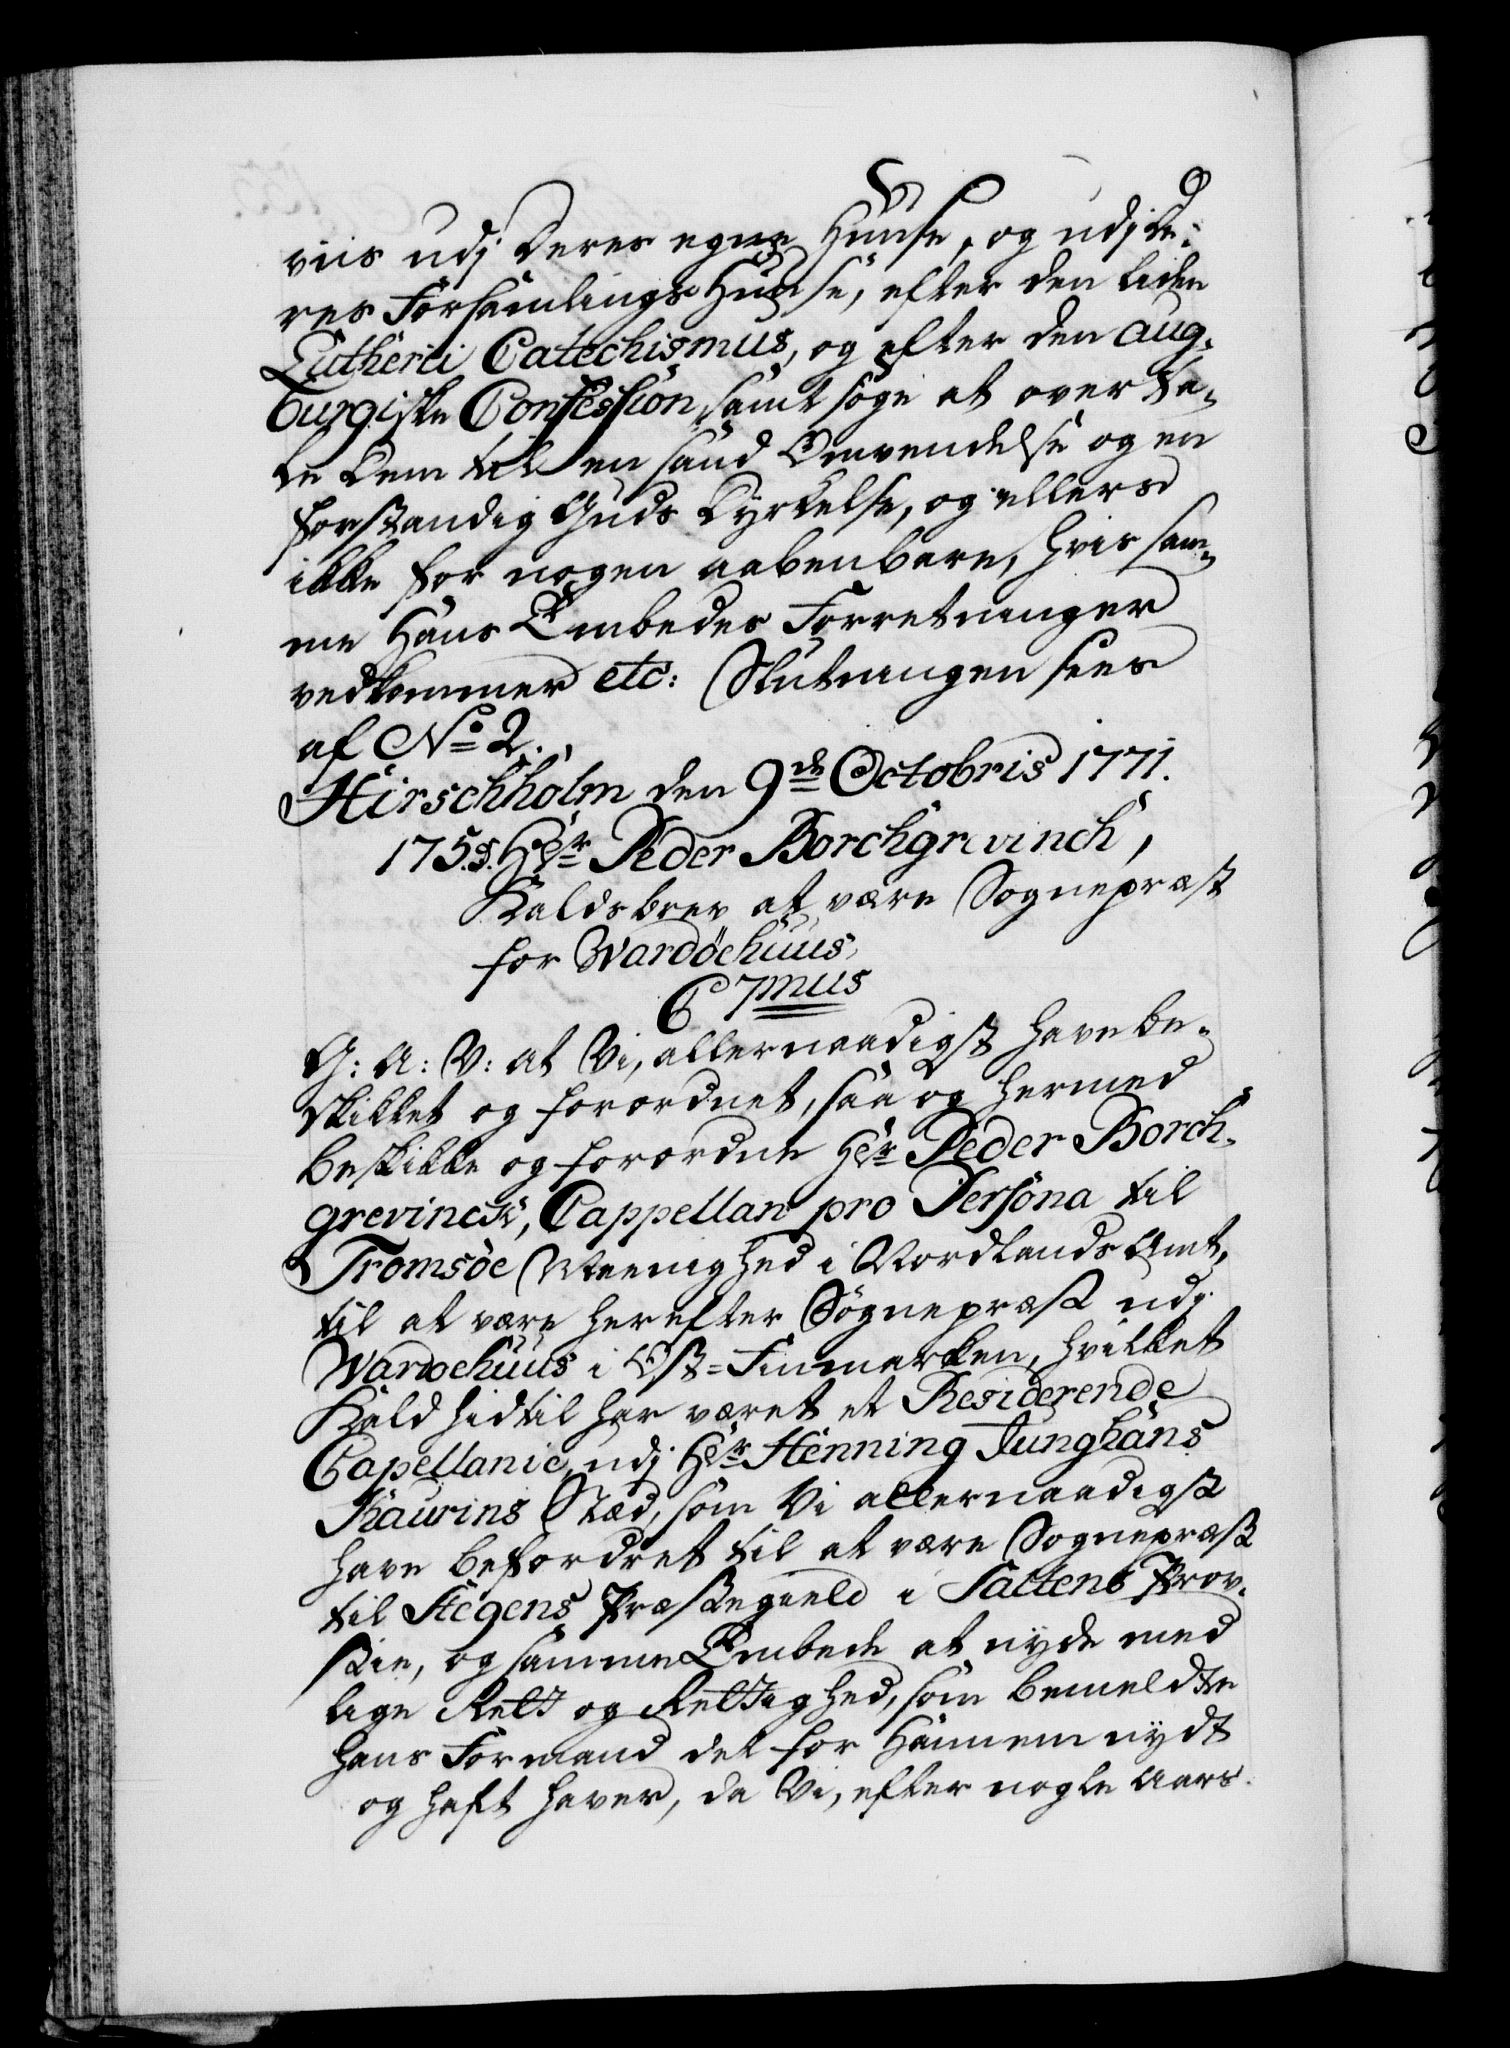 viis udj deres egne Huuse, og udj de¬
res Forsamlings Huuse, efter den liden
Lutheri Catechismus, og efter den aug¬
burgiske Confession, samt søge at overta¬
le dem til en sand Omvendelse og en
forstandig Guds Dyrkelse, og ellers
ikke for nogen aabenbare, hvis sam¬
me Hans Embedes Forretninger
vedkommer etc: Slutningen sees
af No 2.
Hirschholm den 9de Octobris 1771.
175. Hr Peder Borchgrevinch,
Kaldsbrev at være Sognepræst
for Wardøehuus,
C 7mus
G: A: V: at Vi, allernaadigst have be¬
skikket og forordnet, saa og hermed
beskikke og forordne Hr Peder Borch¬
grevinck, Cappellan pro Persona til
Tromsøe Meenighed i Nordlands Amt,
til at være herefter Sognepræst udj
Wardoehuus i Ost-Finmarken, hvilket
Kald hidtil har været et Residerende
Capellanie, udj Hr Henning Junghans
Kaurins Stæd, som Vi allernaadigst
have befordret til at være Sognepræst
til Stegens Præstegield i Saltens Prov¬
stie, og samme Embede at nyde med
lige Rett og Rettighed, som bemeldte
hans Formand det for Hannem nydt
og haft haver, da Vi, efter nogle Aars